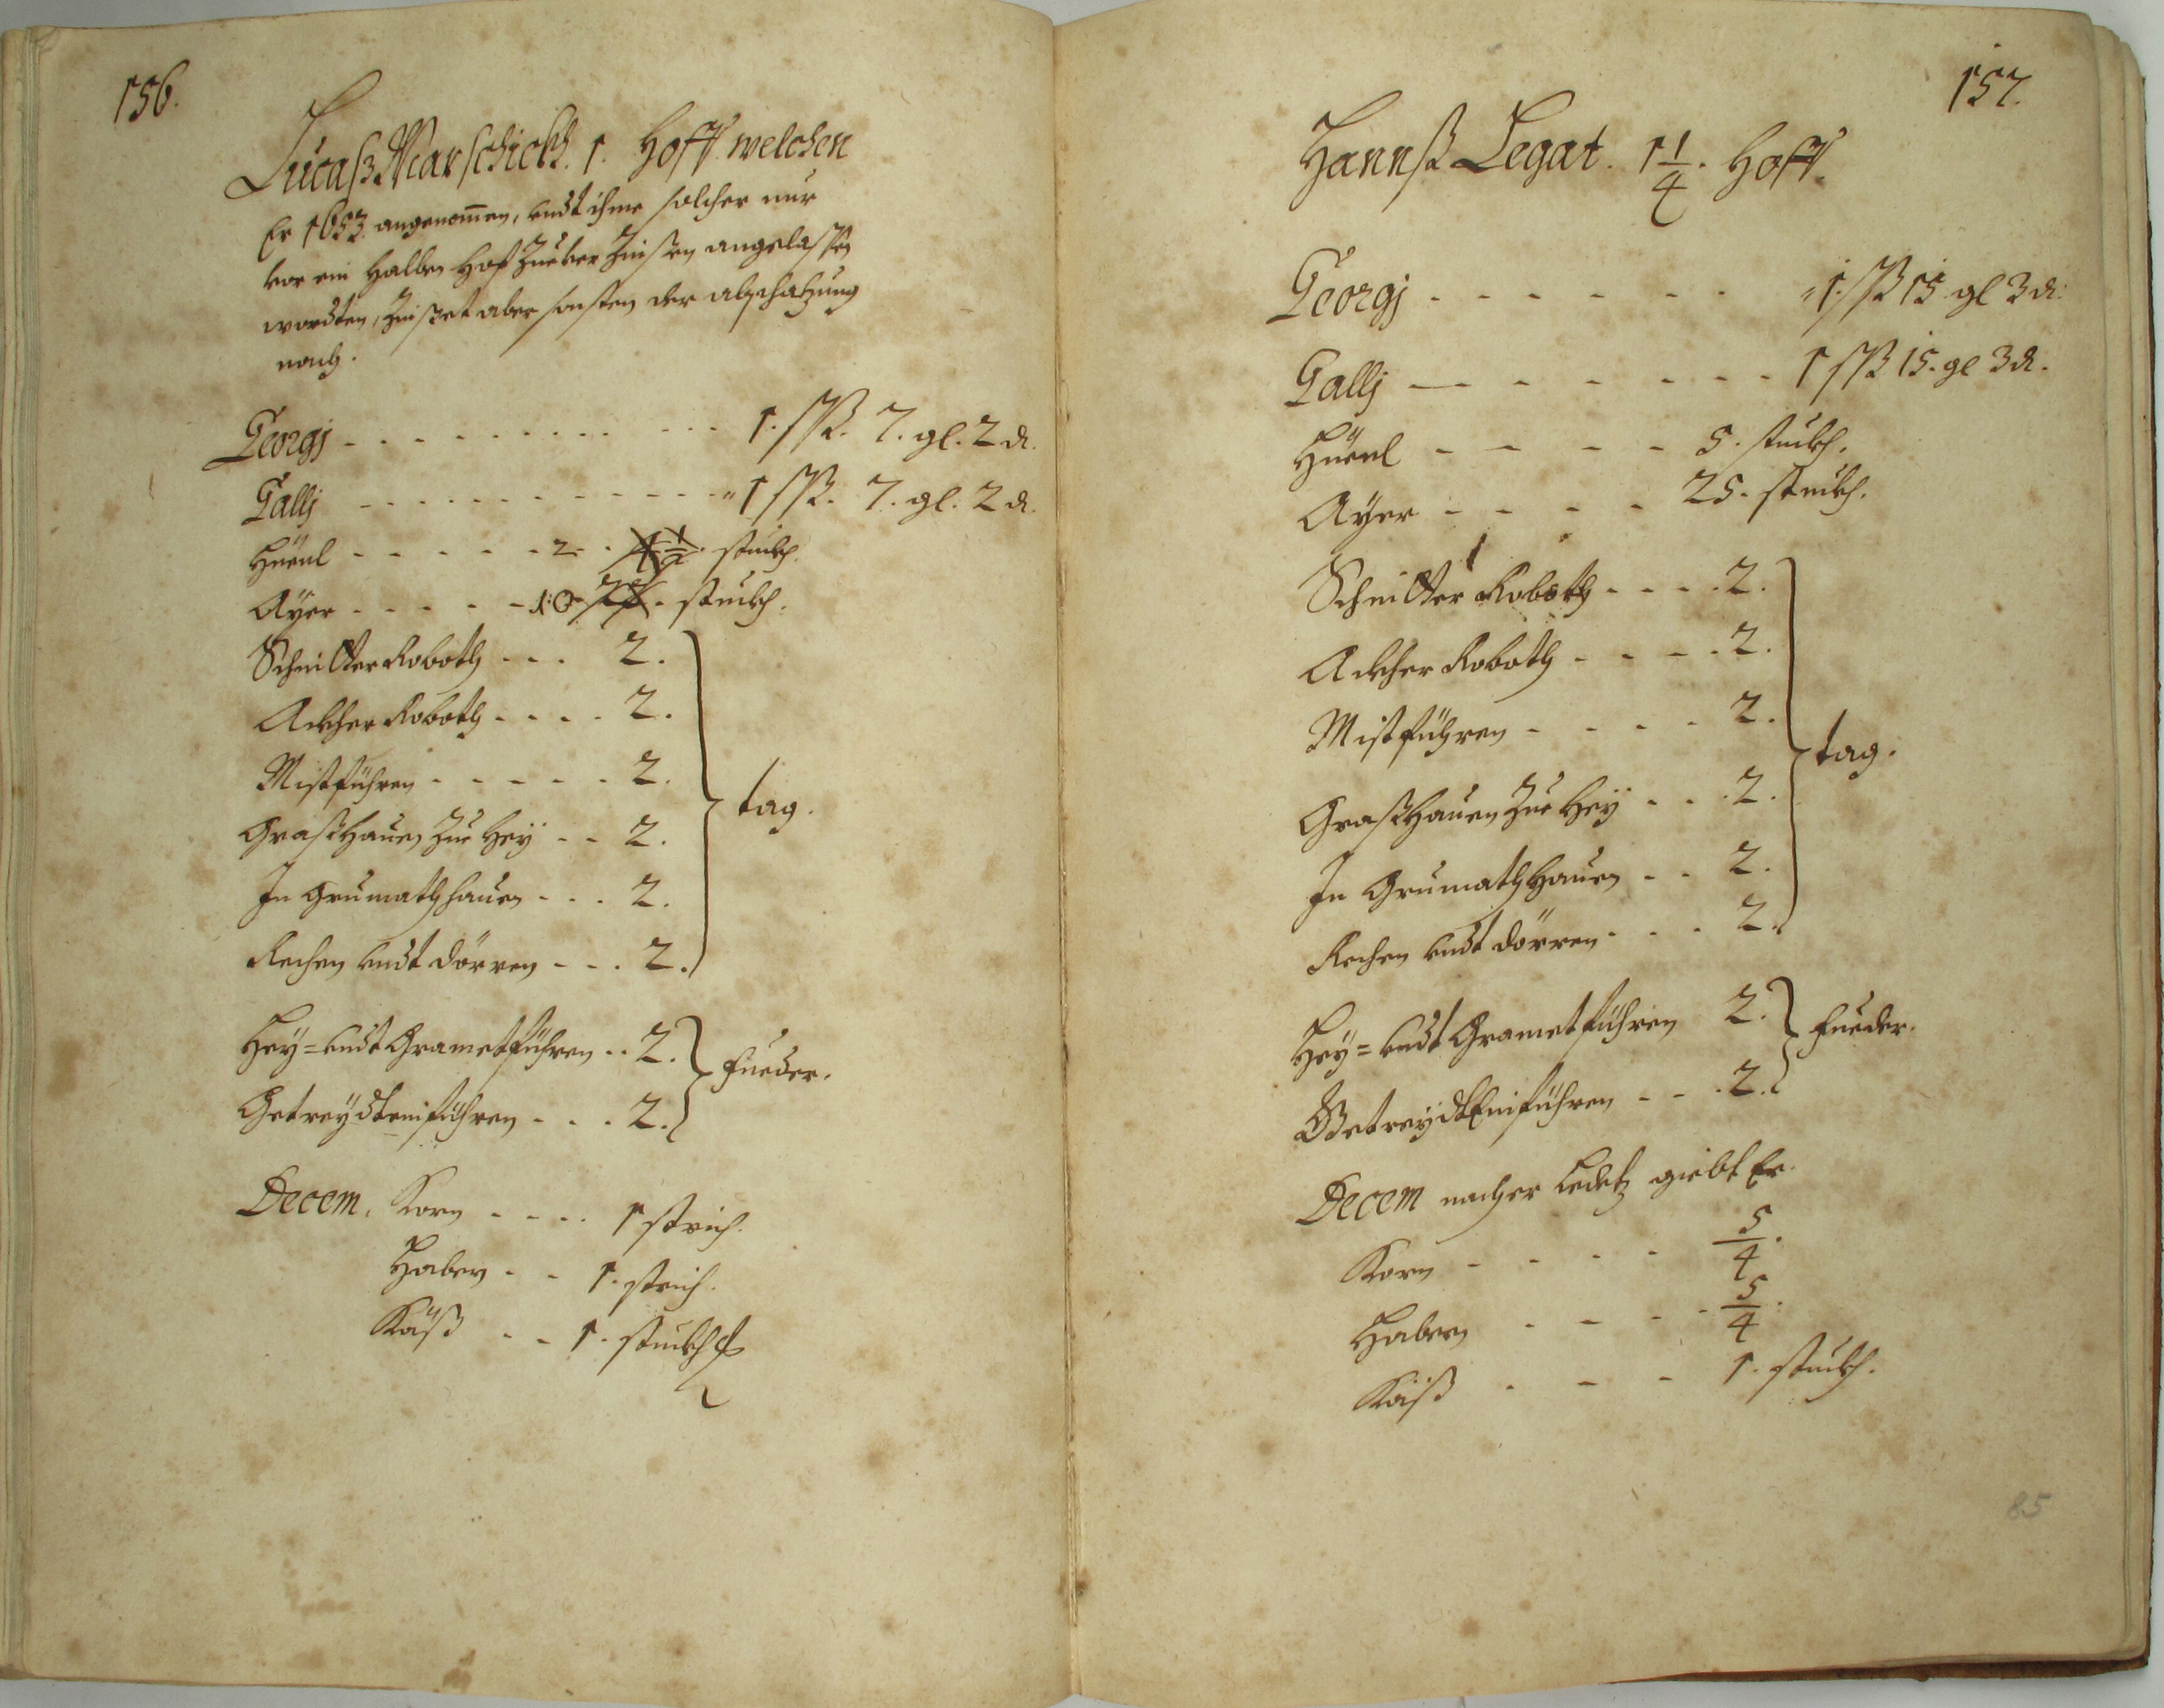 156.
Lucaß Marschickh. 1. Hoff welchen
Er 1653. angenommen, undt ihme solcher nur
vor ein halben Hof Zue ver Zinßen angelaßen
wordten, Zinßet aber sonsten der abschatzung
nach.
Georgj - - - - - - - - - 1. ßß. 7. gl. 2 d.
Gallj - - - - - - - - - 1 ßß. 7. gl. 2 d.
Hüenl - - - - - 2. stuckh.
Ayer - - - - - 10 stuckh.
Schnitter Roboth - - - 2.
Ackher Roboth - - - - 2.
Mistführen - - - - - 2.
Graßhauen Zue Heÿ - - 2.
tag.
In Grumath hauen - - - 2.
Rechen undt dörren - - - 2.
Heÿ= undt Grametführen - - 2.
Fueder.
Getreÿdt einführen - - - 2.
Decem. Korn - - - - 1 strich.
Habern - - 1. strich.
Käß - - 1. stuckh
157.
Hannß Legat. 1 1/4. Hoff.
Georgj - - - - - - - 1. ßß 15 gl 3 d.
Gallj - - - - - - - 1 ßß 15. gl 3 d.
Hüenl - - - - 5. stuckh.
Ayer - - - - 25. stuckh.
Schnitter Roboth - - - - 2.
Ackher Roboth - - - - 2.
Mistführen - - - - 2.
tag.
Graßhauen Zue Heÿ - - - 2.
In Grumath hauen - - 2.
Rechen undt dörren - - - 2.
Heÿ= undt Grametführen 2.
Fueder.
Getreÿdt Einführen - - - 2.
Decem nacher Ledetz giebt Er.
Korn - - - - 5/4.
Habern - - - - 5/4.
Käß - - - 1. stuckh.
85